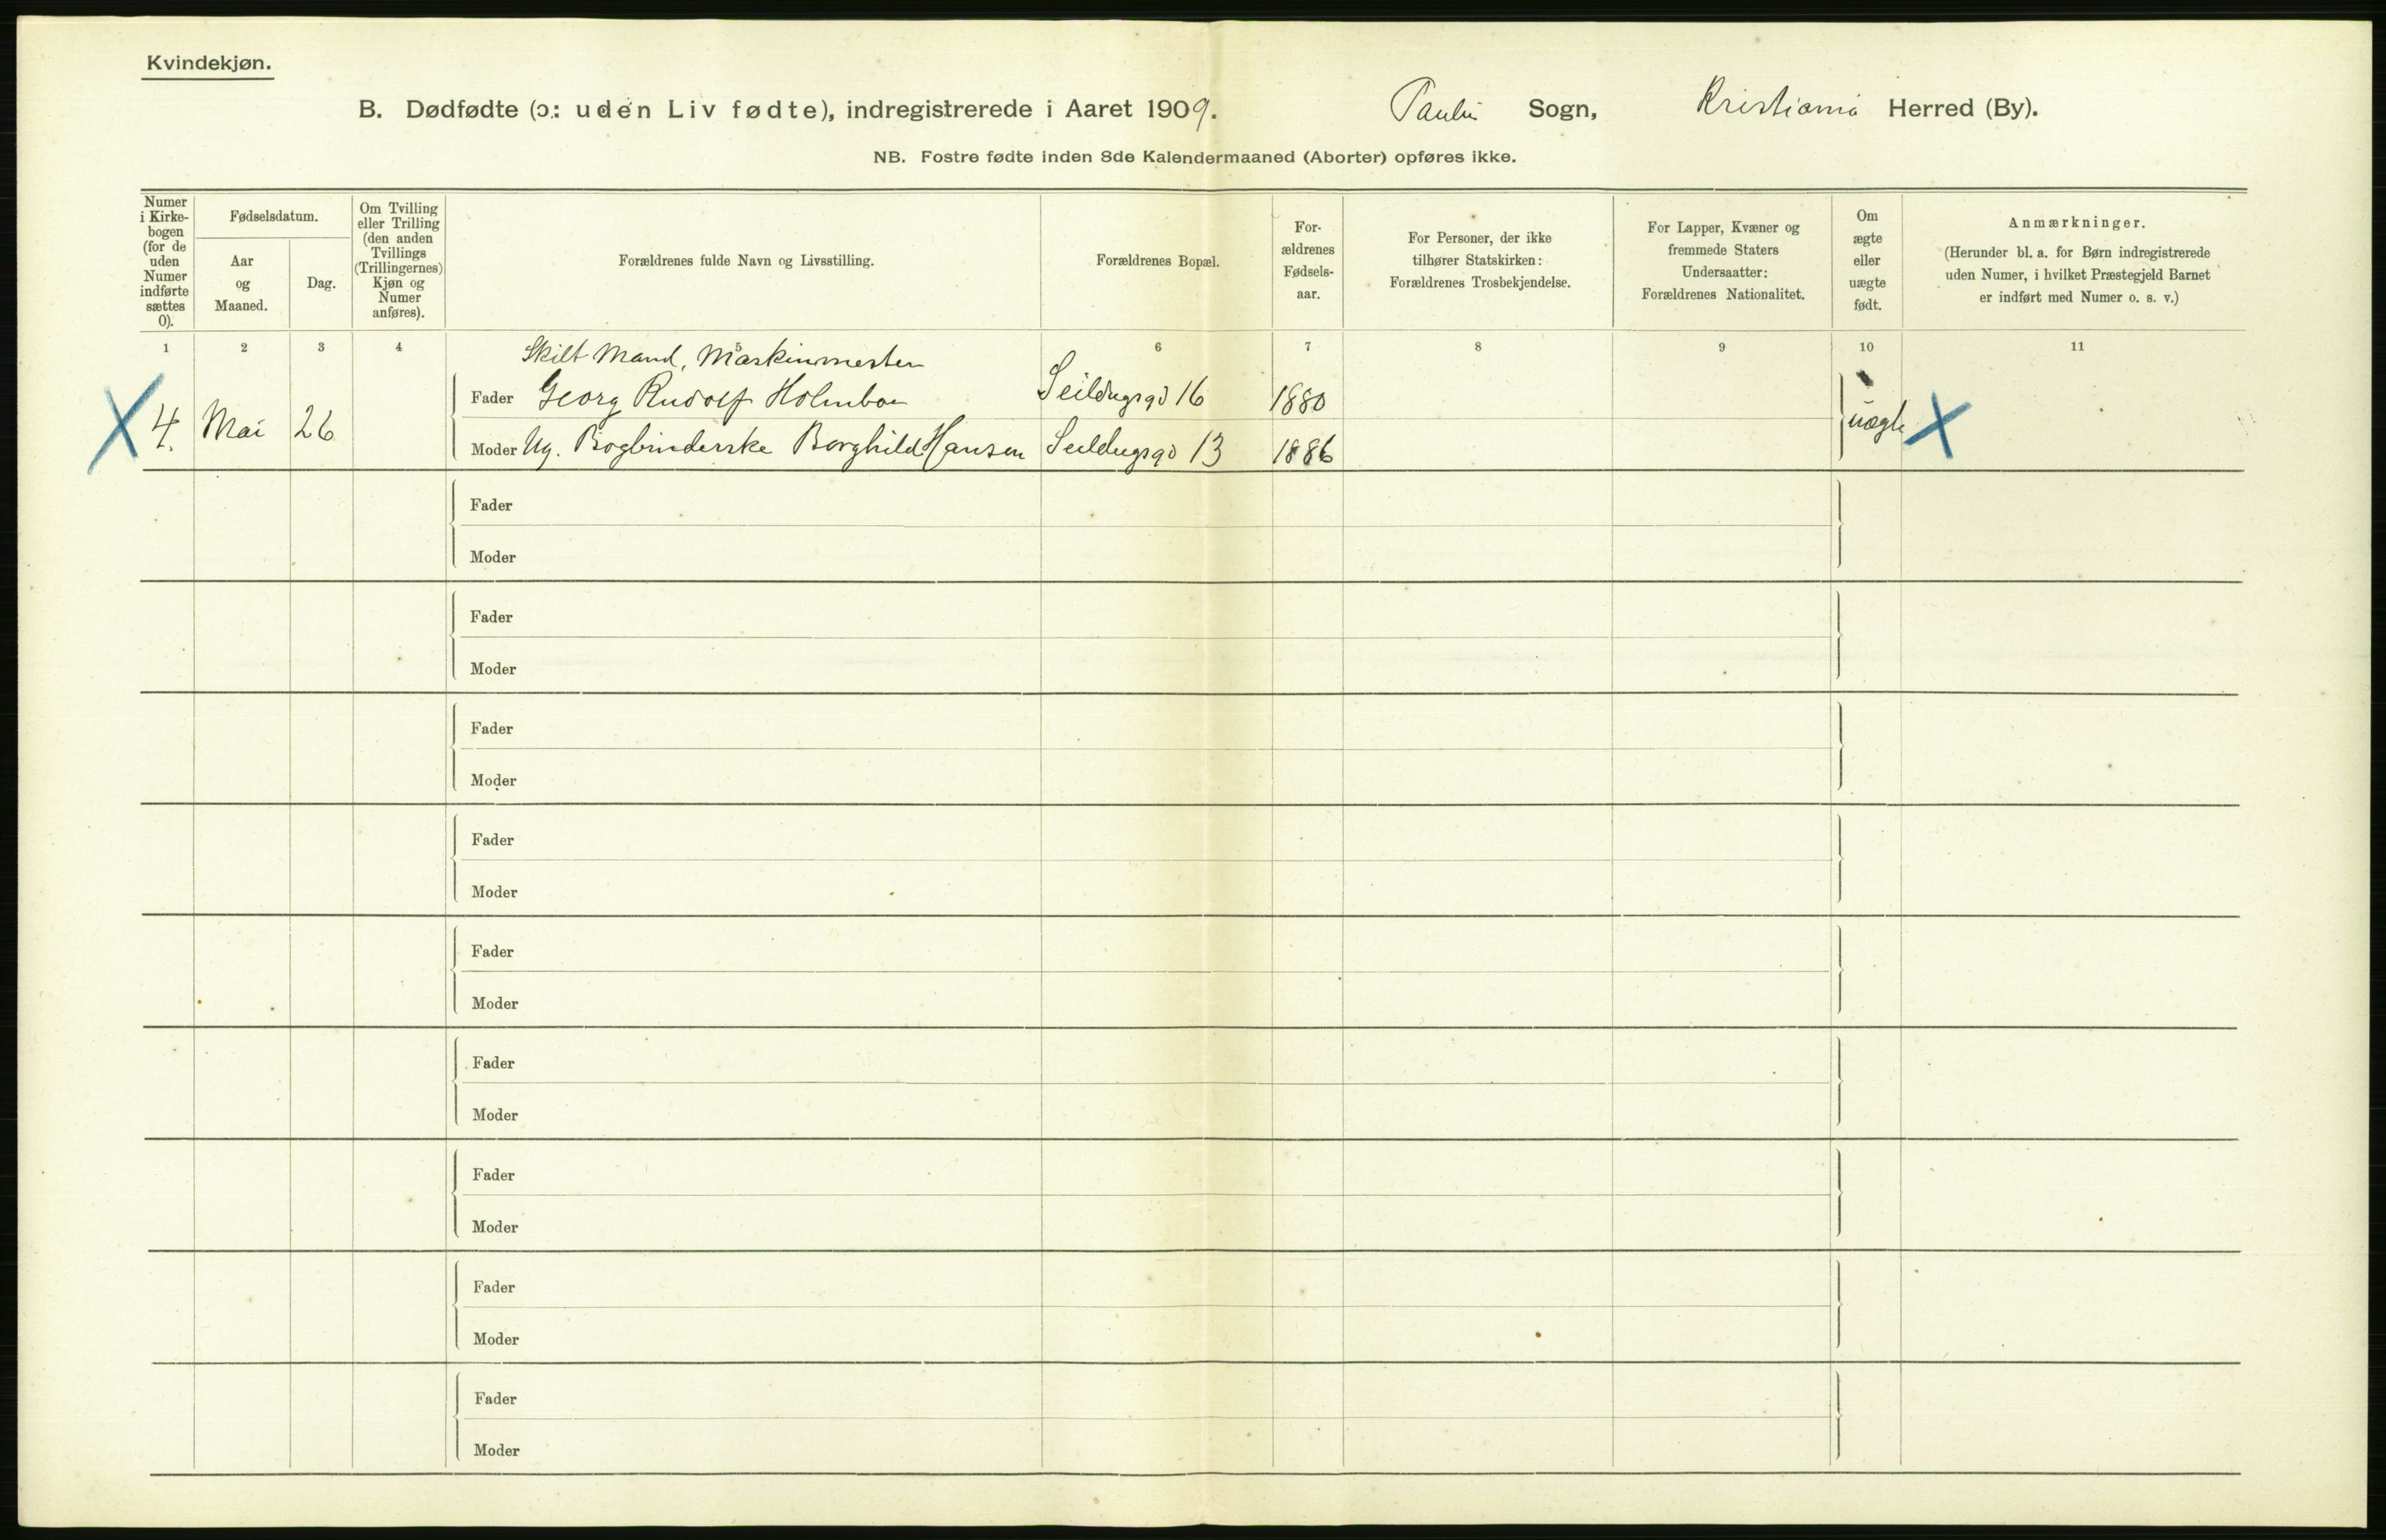 Kvindekjøn.
B. Dødfødte (ɔ: uden Liv fødte), indregistrerede i Aaret 1909. Paulus Sogn, Kristiania Herred (By).
NB. Fostre fødte inden 8de Kalendermaaned (Aborter) opføres ikke.
Numer i Kirke-bogen (for de uden Numer indførte sættes 0).
Fødselsdatum.
Aar og Maaned.
Dag.
Om Tvilling eller Trilling (den anden Tvillings (Trillingernes) Kjøn og Numer anføres).
Forældrenes fulde Navn og Livsstilling.
Forældrenes Bopæl.
For-ældrenes Fødsels-aar.
For Personer, der ikke tilhører Statskirken: Forældrenes Trosbekjendelse.
For Lapper, Kvæner og fremmede Staters Undersaatter: Forældrenes Nationalitet.
Om ægte eller uægte født.
Anmærkninger.
(Herunder bl. a. for Børn indregistrerede uden Numer, i hvilket Præstegjeld Barnet er indført med Numer o. s. v.)
1 2 3 4 5 6 7 8 9 10 11
Skilt Mand, Maskinmester
Fader Georg Rudolf Holmboe Seildugsgd 16 1880
4. Mai 26 uægte
Moder Ug. Bogbinderske Borghild Hansen Seildugsgd 13 1886
Fader
Moder
Fader
Moder
Fader
Moder
Fader
Moder
Fader
Moder
Fader
Moder
Fader
Moder
Fader
Moder
Fader
Moder